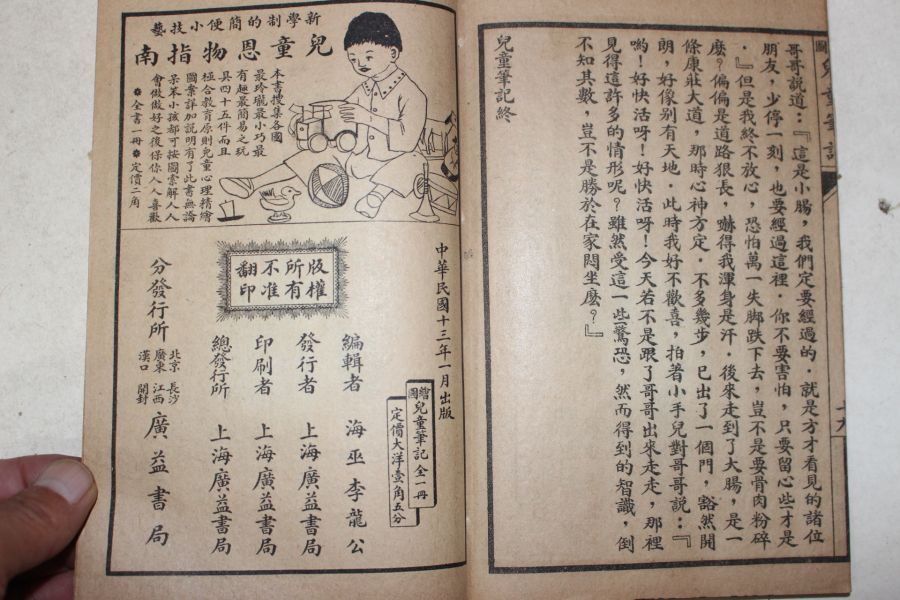 繪圖兒童筆記
十九
哥哥說道：『這是小腸，我們定要經過的．就是方才看見的諸位
朋友，少停一刻，也要經過這裡．你不要害怕，只要留心些才是
．』但是我終不放心，恐怕萬一失脚跌下去，豈不是要骨肉粉碎
麼？偏偏是道路狠長，嚇得我渾身是汗．後來走到了大腸，是一
條康莊大道，那時心神方定．不多幾步，已出了一個門，豁然開
朗，好像别有天地．此時我好不歡喜，拍著小手兒對哥哥說：『
喲！好快活呀！好快活呀！今天若不是跟了哥哥出來走走，那裡
見得這許多的情形呢？雖然受這一些驚恐，然而得到的智識，倒
不知其數，豈不是勝於在家悶坐麼？』
兒童筆記終
新學制的簡便小技藝
兒童恩物指南
本書搜集各國
最玲瓏最小巧最
有趣最簡易之玩
具四十五件而且
極合教育原則兒童心理精繪
圖案詳加說明有了此書無論
呆笨小孩都可按圖索解人人
會做做好之後保你人人喜歡
全書一冊 定價二角
中華民國十三年一月出版
繪圖兒童筆記全一冊
定價大洋壹角五分
版權所有不准翻印
編輯者 海巫李龍公
發行者 上海廣益書局
印刷者 上海廣益書局
總發行所 上海廣益書局
分發行所 北京 廣東 漢口 長沙 江西 開封 廣益書局